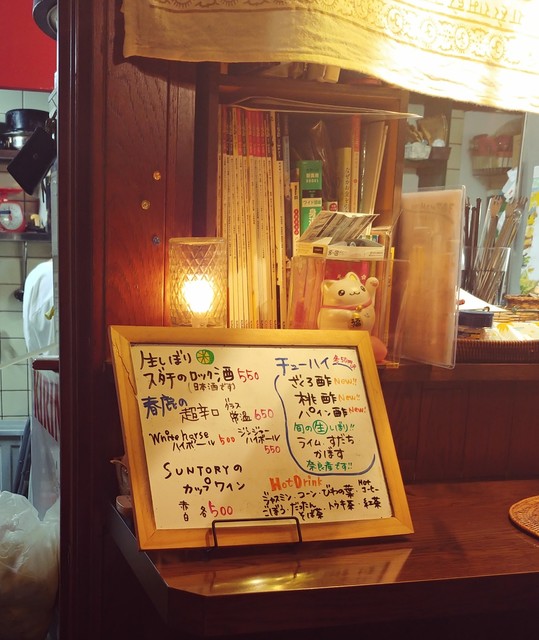 生しぼり
スダチのロック酒 550
(日本酒です)
春鹿の
超辛口 グラス 常温 650
White horse
ハイボール 500
ジンジャー
ハイボール
550
SUNTORYの
カップワイン
赤 白 各500
チューハイ 各550yen
ざくろ酢 New!!
桃酢 New!!
パイン酢 New!
旬の生しぼり!!
ライム、すだち
かぼす
奈良産です!!
Hot Drink
ジャスミン・コーン・びわの葉・
ごぼう・だったんそば茶・トウキ茶・紅茶
Hot
コーヒー